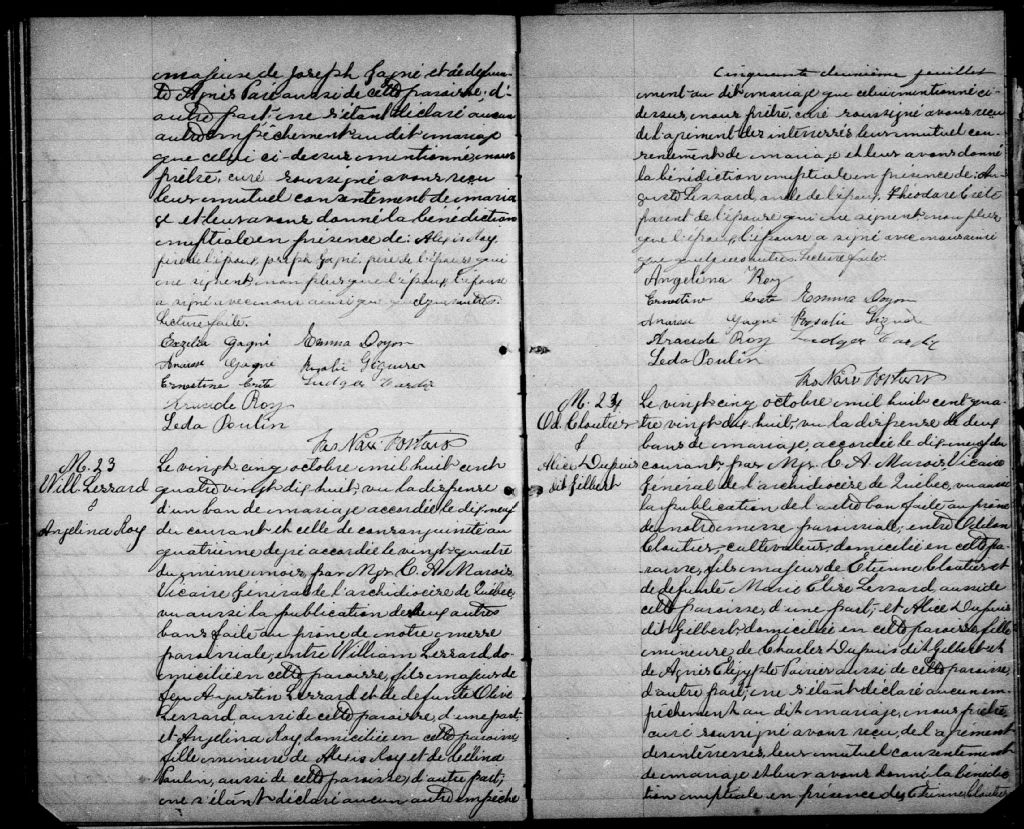 majeure de Joseph Gagné et de defun-
te Agnès Paré aussi de cette paroisse, d'
autre part; ne s'étant déclaré aucun
autre empêchement au dit mariage
que celui ci dessus mentionné, nous
prêtre, curé soussigné avons reçu
leur mutuel consentement de maria
ge et leur avons donné la bénédiction
nuptiale en présence de: Alexis Roy,
père de l'époux, Joseph Gagné, père de l'épouse qui
ne signent non plus que l'époux, l'épouse
a signé avec nous ainsi que quelques autres.
Lecture faite.
Exzelia Gagné Emma Doyon
Anaisse Gagné Rosalie Giguère
Ernestine Creto Ludger Tardif
Araude Roy
Leda Poulin
M. 23
Will. Lessard
&
Angelina Roy
Le vingt cinq octobre mil huit cent
quatre vingt dix huit, vu la dispense
d'un ban de mariage accordée le dix neuf
du courant et celle de consanguinité au
quatrième degré accordée le vingt-quatre
du même mois, par Mgr. C. A. Marois
Vicaire Général de l'archidiocèse de Québec,
vu aussi la publication de deux autres
bans faite au prône de notre messe
paroissiale, entre William Lessard do-
micilié en cette paroisse, fils majeur de
feu Augustin Lessard et de defunte Olive
Lessard, aussi de cette paroisse, d'une part;
et Angelina Roy domiciliée en cette paroisse
fille mineure de Alexis Roy et de Célina
Poulin, aussi de cette paroisse, d'autre part;
ne s'étant déclaré aucun autre empêche
Cinquante deuxième feuillet
ment au dit mariage que celui mentionné ci-
dessus, nous prêtre, curé soussigné avons reçu
de l'agrément des intéressés leur mutuel con-
sentement de mariage et leur avons donné
la bénédiction nuptiale en présence de: Au-
guste Lessard, oncle de l'époux, Théodore Creto
parent de l'épouse qui ne signent non plus
que l'époux, l'épouse a signé avec nous ainsi
que quelques autres. Lecture faite.
Angelina Roy
Ernestine Creto Emma Doyon
Anaisse Gagné Rosalie Giguère
Araude Roy Ludger Tardif
Leda Poulin
M. 24
Od. Cloutier
&
Alice Dupuis
dit Gilbert
Le vingt cinq octobre mil huit cent qua-
tre vingt dix huit, vu la dispense de deux
bans de mariage, accordée le dix neuf du
courant par Mgr. C. A. Marois Vicaire
Général de l'archidiocèse de Québec, vu aussi
la publication de l'autre ban faite au prône
de notre messe paroissiale, entre Odilon
Cloutier, cultivateur, domicilié en cette pa-
roisse, fils majeur de Etienne Cloutier et
de defunte Marie Elise Lessard, aussi de
cette paroisse, d'une part; et Alice Dupuis
dit Gilbert, domiciliée en cette paroisse, fille
mineure de Charles Dupuis dit Gilbert et
de Agnès Poirier aussi de cette paroisse,
d'autre part; ne s'étant déclaré aucun em-
pêchement au dit mariage, nous prêtre
curé soussigné avons reçu, de l'agrément
des intéressés, leur mutuel consentement
de mariage et leur avons donné la bénédic
tion nuptiale en présence de Etienne Cloutier